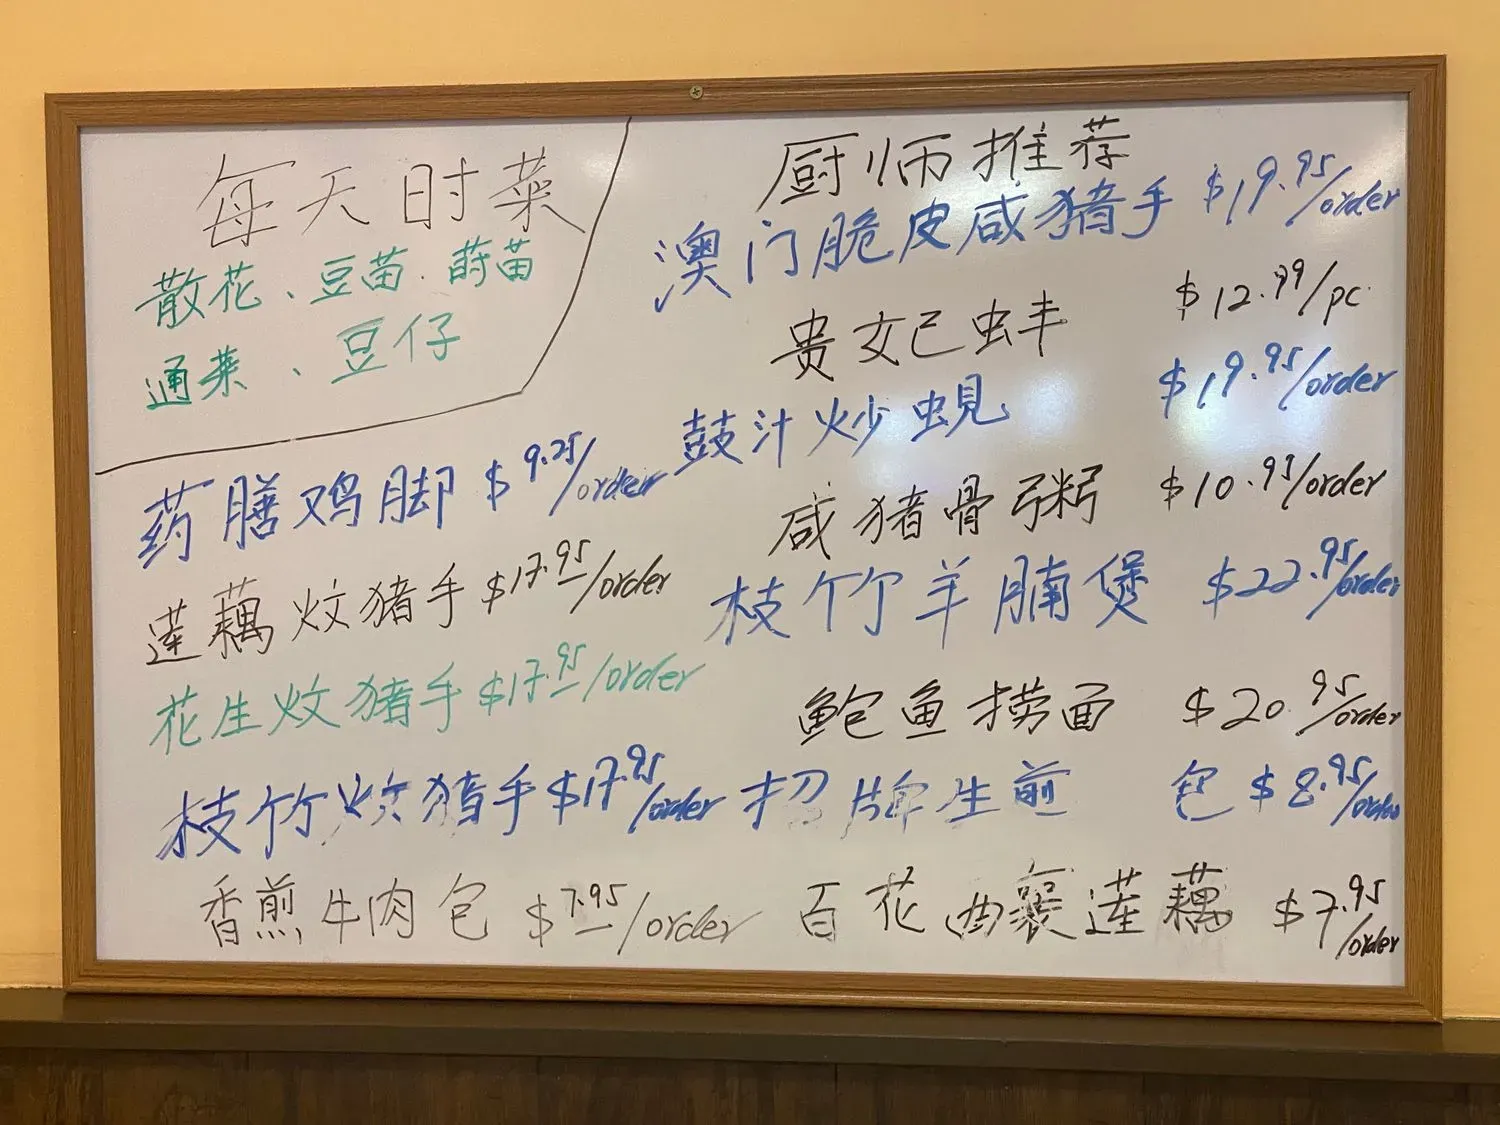 每天时菜
散花、豆苗、莳苗
通菜、豆仔
药膳鸡脚 $9.25/order
莲藕炆猪手 $17.95/order
花生炆猪手 $17.95/order
枝竹炆猪手 $17.95/order
香煎牛肉包 $7.95/order
厨师推荐
澳门脆皮咸猪手 $19.95/order
贵妃蚌 $12.99/pc
鼓汁炒蚬 $19.95/order
咸猪骨粥 $10.95/order
枝竹羊腩煲 $22.95/order
鲍鱼捞面 $20.95/order
招牌生煎包 $8.95/order
百花曲襄莲藕 $7.95/order